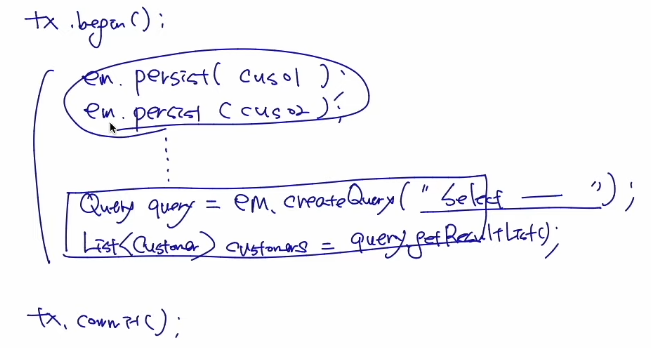 tx.begin();
em.persist( cus01 );
em.persist (cus02);
Query query = em.createQuery("Select — ");
List<Customer> customers = query.getResultList();
tx.commit();